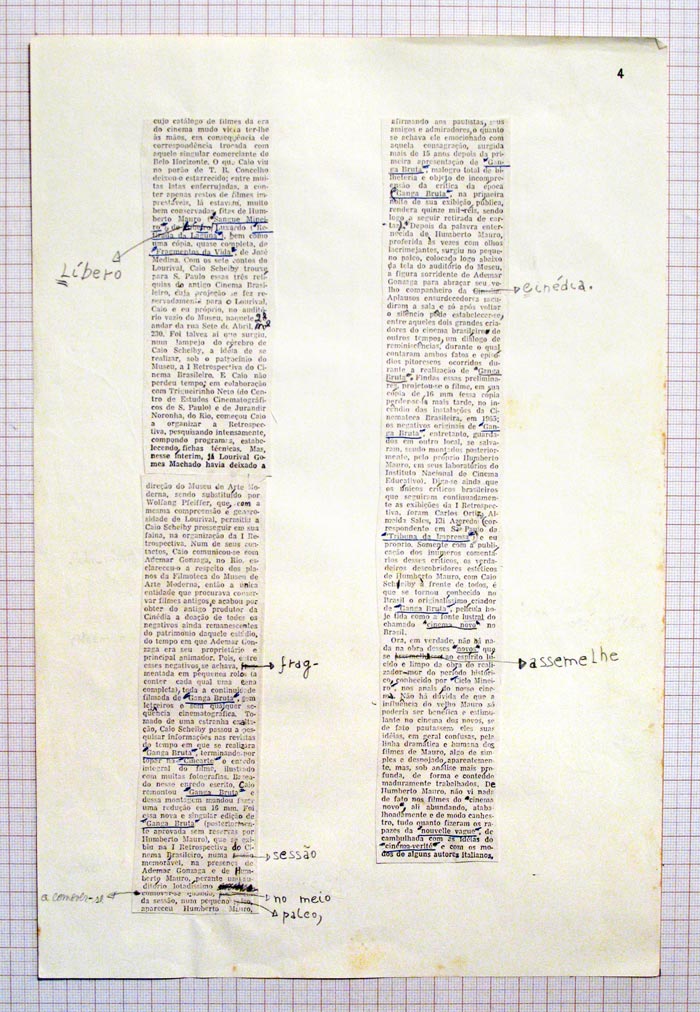 4
cujo catálogo de filmes da era
do cinema mudo viera ter-lhe
às mãos, em conseqüência de
correspondência trocada com
aquele singular comerciante de
Belo Horizonte. O que Caio viu
no porão de T. B. Concelho
deixou-o estarrecido; entre muitas
latas enferrujadas, a conter
apenas restos de filmes imprestáveis,
lá estavam, muito
bem conservadas, fitas de Humberto
Mauro ("Sangue Mineiro"),
de Luxardo ("Rebento
da Laguna"), bem como
uma cópia, quase completa, de
"Fragmentos da Vida", de José
Medina. Com os seis contos do
Lourival, Caio Scheiby trouxe
para S. Paulo essas três relíquias
do antigo Cinema Brasileiro,
cuja projeção se fez reservadamente
para o Lourival,
Caio e eu próprio, no auditório
vazio do Museu, naquele 2º
andar da rua Sete de Abril, nº
230. Foi talvez aí que surgiu,
num lampejo do cérebro de
Caio Scheiby, a idéia de se
realizar, sob o patrocínio do
Museu, a I Retrospectiva do Cinema
Brasileiro. E Caio não
perdeu tempo; em colaboração
com Trigueirinho Neto (do Centro
de Estudos Cinematográficos
de S. Paulo) e de Jurandir
Noronha, do Rio, começou Caio
a organizar a Retrospectiva,
pesquisando intensamente,
compondo programas, estabelecendo
fichas técnicas. Mas,
nesse ínterim, já Lourival Gomes
Machado havia deixado a
Líbero
direção do Museu de Arte Moderna,
sendo substituído por
Wolfang Pfeiffer, que, com a
mesma compreensão e generosidade
de Lourival, permitiu a
Caio Scheiby prosseguir em sua
faina, na organização da I Retrospectiva.
Num de seus contactos,
Caio comunicou-se com
Ademar Gonzaga, no Rio, esclareceu-o
a respeito dos planos
da Filmoteca do Museu de
Arte Moderna, então a única
entidade que procurava conservar
filmes antigos, e acabou por
obter do antigo produtor da
Cinédia a doação de todos os
negativos ainda remanescentes
do patrimônio daquele estúdio,
do tempo em que Ademar Gonzaga
era seu proprietário e
principal animador. Pois, entre
esses negativos, se achava,
mentada em pequenos rolos (a
conter cada qual uma cena
completa), toda a continuidade
filmada de "Ganga Bruta", sem
letreiros e sem qualquer seqüência
cinematográfica. Tomado
de uma estranha exaltação,
Caio Scheiby passou a pesquisar
informações nas revistas
do tempo em que se realizara
"Ganga Bruta", terminando por
topar na "Cinearte" o enredo
integral do filme, ilustrado
com muitas fotografias. Baseado
nesse enredo escrito, Caio
remontou "Ganga Bruta" e
dessa montagem mandou fazer
uma redução em 16 mm. Foi
essa nova e singular edição de
"Ganga Bruta" (posteriormente
aprovada sem reservas por
Humberto Mauro), que se exibiu
na I Retrospectiva do Cinema
Brasileiro, numa
memorável, na presença de
Ademar Gonzaga e de Humberto
Mauro, perante um auditório
lotadíssimo
quando,
da sessão, num pequeno
apareceu Humberto Mauro,
frag-
sessão
a comover-se
no meio
palco,
afirmando aos paulistas, seus
amigos e admiradores, o quanto
se achava ele emocionado com
aquela consagração, surgida
mais de 15 anos depois da primeira
apresentação de "Ganga
Bruta", malogro total de bilheteria
e objeto de incompreensão
da crítica da época
("Ganga Bruta", na primeira
noite de sua exibição pública,
rendera quinze mil-réis, sendo
logo a seguir retirada de cartaz).
Depois da palavra enternecida
de Humberto Mauro,
proferida às vezes com olhos
lacrimejantes, surgiu no pequeno
palco, colocado logo abaixo
da tela do auditório do Museu,
a figura sorridente de Ademar
Gonzaga para abraçar seu velho
companheiro da
Aplausos ensurdecedores sacudiram
a sala e só após voltar
o silêncio pôde estabelecer-se,
entre aqueles dois grandes criadores
do cinema brasileiro de
outros tempos, um diálogo de
reminiscências, durante o qual
contaram ambos fatos e episódios
pitorescos ocorridos durante
a realização de "Ganga
Bruta". Findas essas preliminares,
projetou-se o filme, em sua
cópia de 16 mm (essa cópia
perder-se-ia mais tarde, no incêndio
das instalações da Cinemateca
Brasileira, em 1965;
os negativos originais de "Ganga
Bruta", entretanto, guardados
em outro local, se salvaram,
sendo montados posteriormente,
pelo próprio Humberto
Mauro, em seus laboratórios do
Instituto Nacional do Cinema
Educativo). Diga-se ainda que
os únicos críticos brasileiros
que seguiram continuadamente
as exibições da I Retrospectiva,
foram Carlos Ortiz, Almeida
Sales, Eli Azeredo (correspondente
em São Paulo da
"Tribuna da Imprensa") e eu
próprio. Somente com a publicação
dos inúmeros comentários
desses críticos, os verdadeiros
descobridores estéticos
de Humberto Mauro, com Caio
Scheiby à frente de todos, é
que se tornou conhecido no
Brasil o originalíssimo criador
de "Ganga Bruta", película hoje
tida como a fonte lustral do
chamado "cinema novo" no
Brasil.
Ora, em verdade, não há nada
na obra desses "novos" que
ao espírito lúcido
e limpo da obra do realizador-mor
do período histórico,
conhecido por "Ciclo Mineiro",
nos anais do nosso cinema.
Não há dúvida de que a
influência do velho Mauro só
poderia ser benéfica e estimulante
no cinema dos novos, se
de fato pautassem eles suas
idéias, em geral confusas, pela
linha dramática e humana dos
filmes de Mauro, algo de simples
e despojado, aparentemente,
mas, sob análise mais profunda,
de forma e conteúdo
maduramente trabalhados. De
Humberto Mauro, não vi nada
de fato nos filmes do "cinema
novo"; ali abundando, atabalhoadamente
e de modo canhestro,
tudo quanto fizeram os rapazes
da "nouvelle vague", de
cambulhada com as idéias do
"cinéma-verité" e com os modos
de alguns autores italianos,
cinédia.
assemelhe